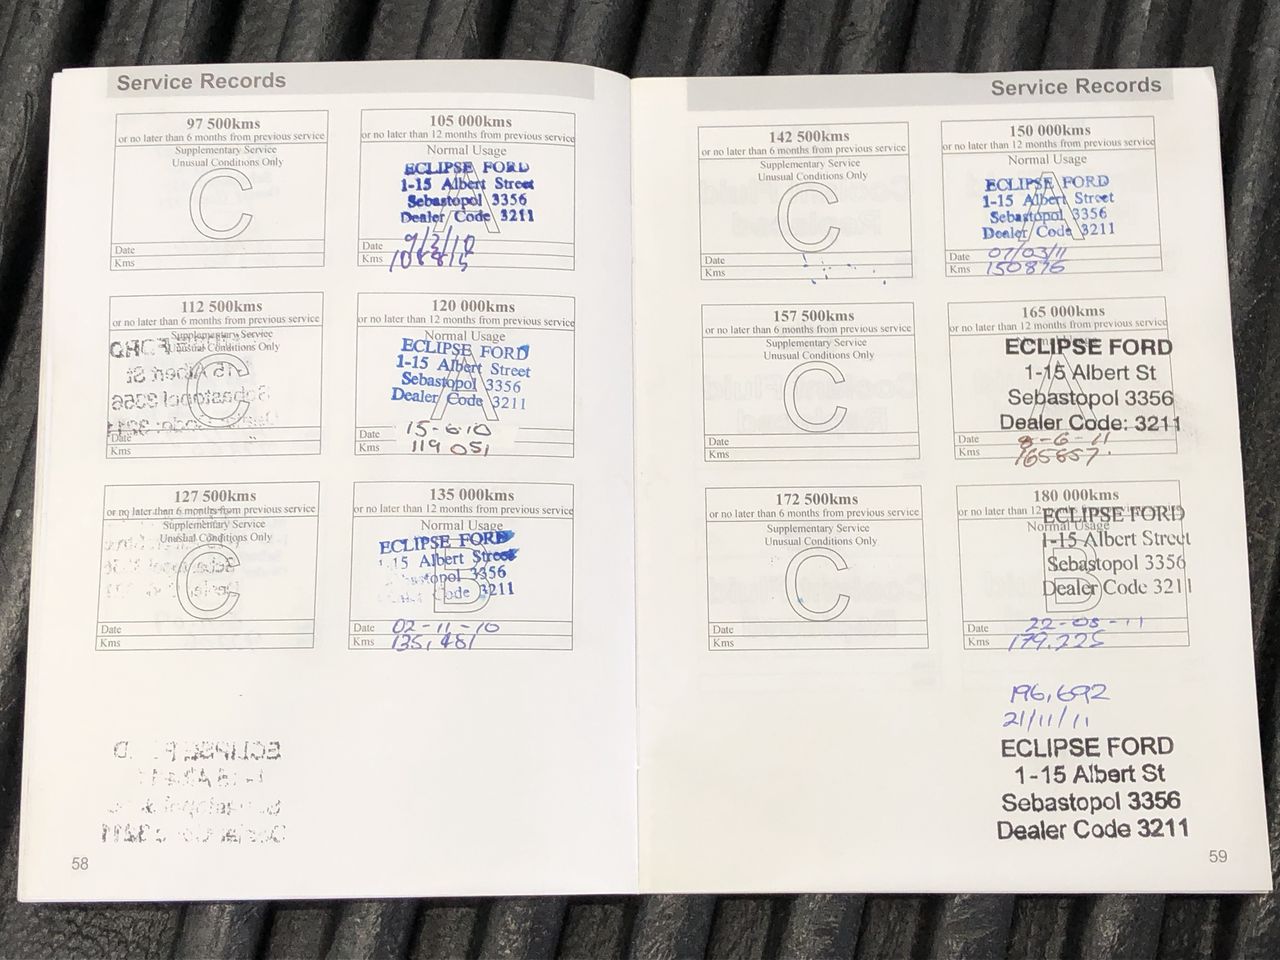 Service Records
97 500kms
or no later than 6 months from previous service
Supplementary Service
Unusual Conditions Only
C
Date
Kms
105 000kms
or no later than 12 months from previous service
Normal Usage
A
ECLIPSE FORD
1-15 Albert Street
Sebastopol 3356
Dealer Code 3211
Date 9/3/10
Kms 108815
112 500kms
or no later than 6 months from previous service
Supplementary Service
Unusual Conditions Only
C
Date
Kms
120 000kms
or no later than 12 months from previous service
Normal Usage
A
ECLIPSE FORD
1-15 Albert Street
Sebastopol 3356
Dealer Code 3211
Date 15-6-10
Kms 119 051
127 500kms
or no later than 6 months from previous service
Supplementary Service
Unusual Conditions Only
C
Date
Kms
135 000kms
or no later than 12 months from previous service
Normal Usage
B
ECLIPSE FORD
1-15 Albert Street
Sebastopol 3356
Dealer Code 3211
Date 02-11-10
Kms 135,481
58
Service Records
142 500kms
or no later than 6 months from previous service
Supplementary Service
Unusual Conditions Only
C
Date
Kms
150 000kms
or no later than 12 months from previous service
Normal Usage
A
ECLIPSE FORD
1-15 Albert Street
Sebastopol 3356
Dealer Code 3211
Date 07/03/11
Kms 150876
157 500kms
or no later than 6 months from previous service
Supplementary Service
Unusual Conditions Only
C
Date
Kms
165 000kms
or no later than 12 months from previous service
Normal Usage
A
ECLIPSE FORD
1-15 Albert St
Sebastopol 3356
Dealer Code: 3211
Date 8-6-11
Kms 165857.
172 500kms
or no later than 6 months from previous service
Supplementary Service
Unusual Conditions Only
C
Date
Kms
180 000kms
or no later than 12 months from previous service
Normal Usage
B
ECLIPSE FORD
1-15 Albert Street
Sebastopol 3356
Dealer Code 3211
Date 22-08-11
Kms 179.225
196,692
21/11/11
ECLIPSE FORD
1-15 Albert St
Sebastopol 3356
Dealer Code 3211
59